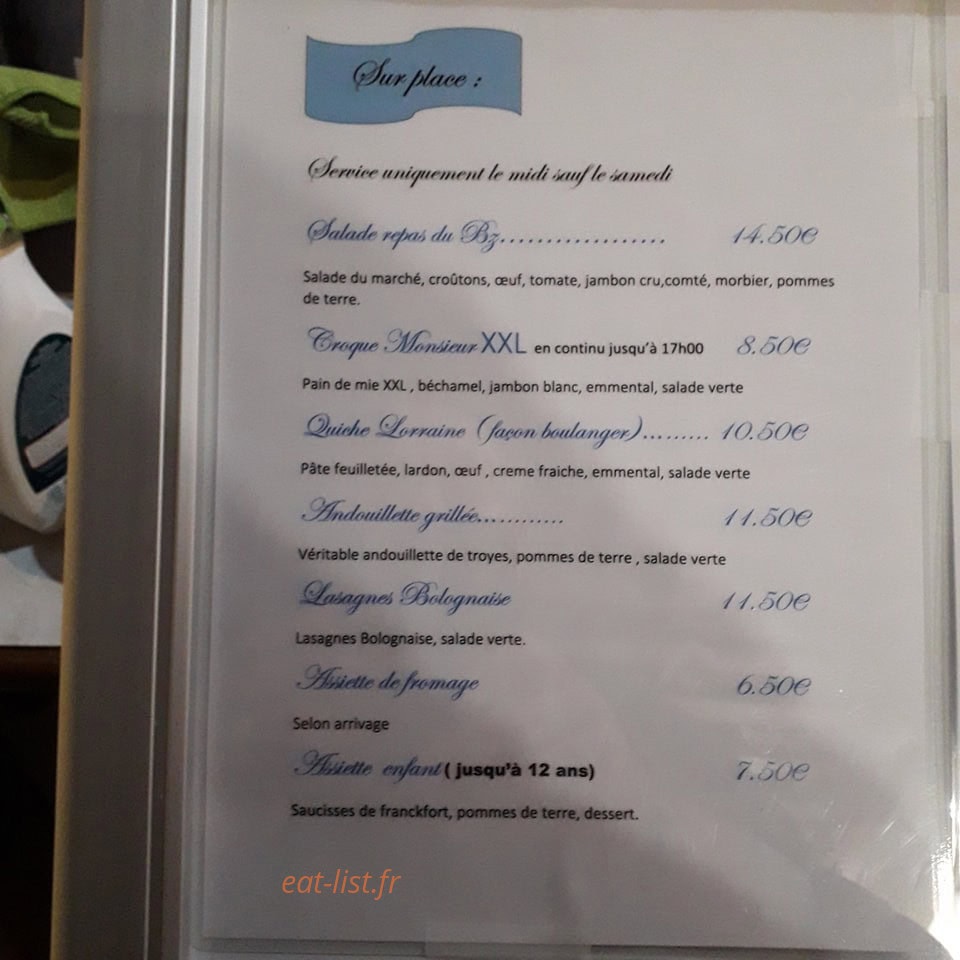 Sur place :
Service uniquement le midi sauf le samedi
Salade repas du Bz................... 14.50€
Salade du marché, croûtons, œuf, tomate, jambon cru,comté, morbier, pommes
de terre.
Croque Monsieur XXL en continu jusqu'à 17h00 8.50€
Pain de mie XXL , béchamel, jambon blanc, emmental, salade verte
Quiche Lorraine (façon boulanger)......... 10.50€
Pâte feuilletée, lardon, œuf , creme fraiche, emmental, salade verte
Andouillette grillée............ 11.50€
Véritable andouillette de troyes, pommes de terre , salade verte
Lasagnes Bolognaise 11.50€
Lasagnes Bolognaise, salade verte.
Assiette de fromage 6.50€
Selon arrivage
Assiette enfant ( jusqu'à 12 ans) 7.50€
Saucisses de franckfort, pommes de terre, dessert.
eat-list.fr